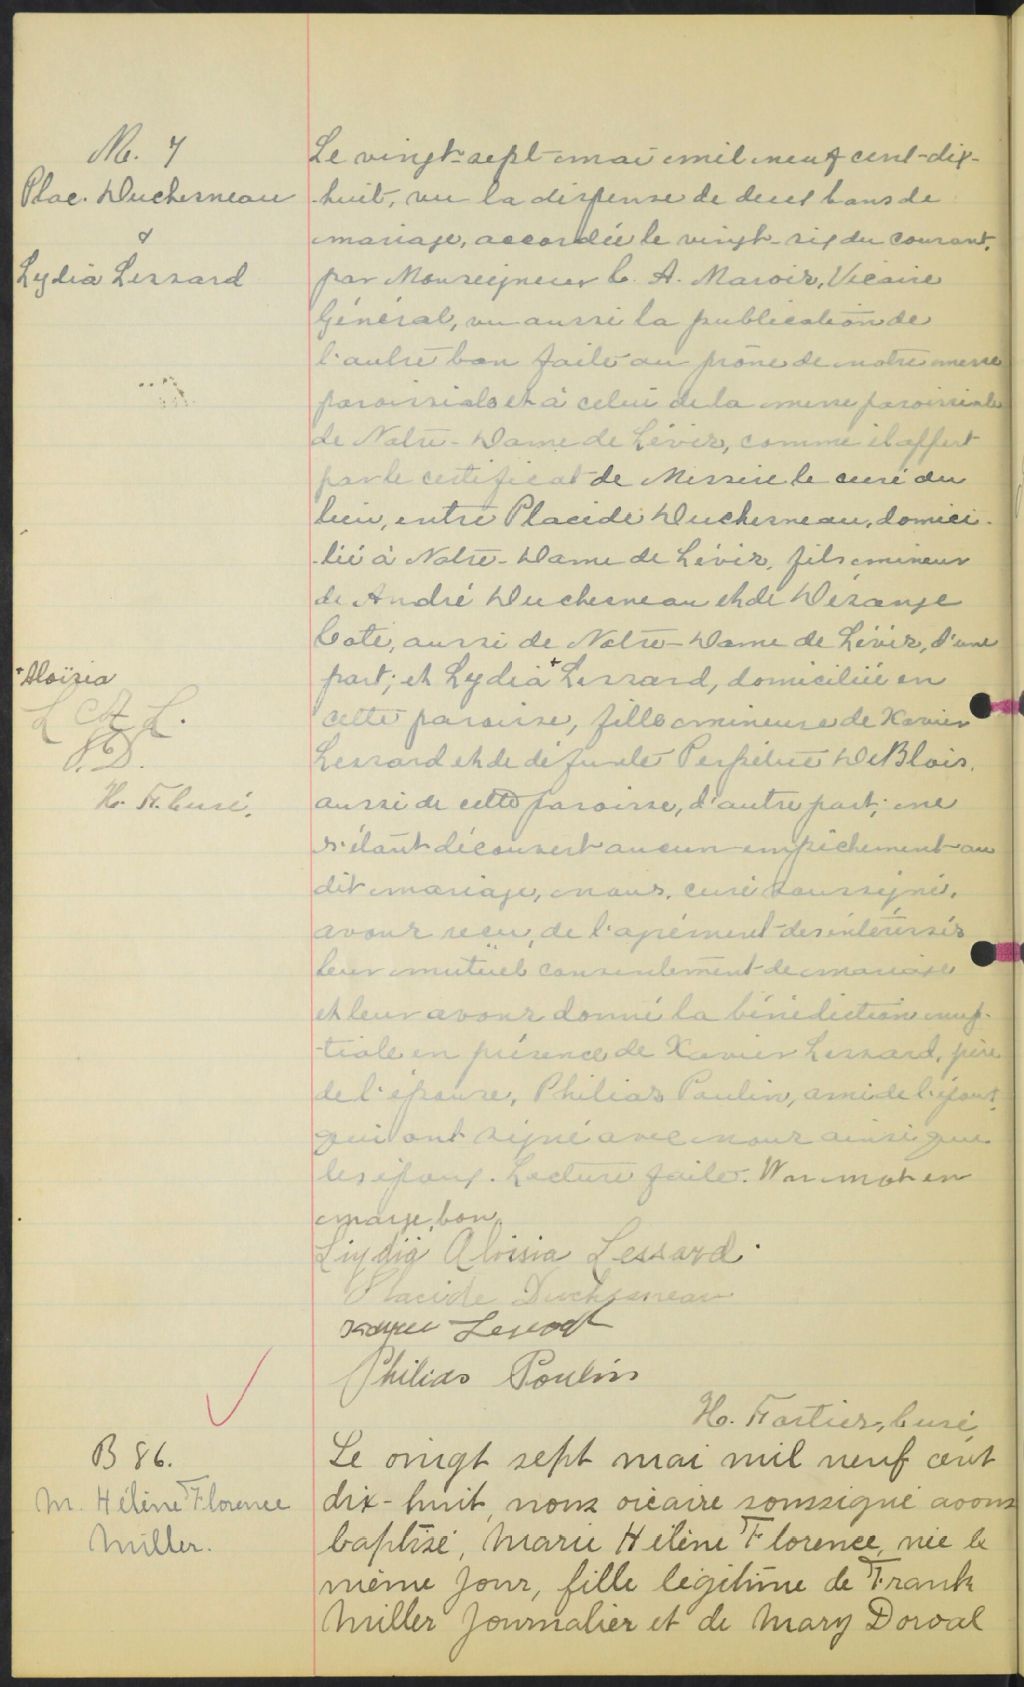 M. 7
Plac. Duchesneau
&
Lydia Lessard
Le vingt-sept mai mil neuf cent-dix-
-huit, vu la dispense de deux bans de
mariage, accordée le vingt-six du courant,
par Monseigneur C. A. Marois, Vicaire
Général, vu aussi la publication de
l'autre ban faite au prône de notre messe
paroissiale et à celui de la messe paroissiale
de Notre-Dame de Lévis, comme il appert
par le certificat de Messire le curé du
lieu, entre Placide Duchesneau, domici-
-lié à Notre-Dame de Lévis, fils mineur
de André Duchesneau et de Désange
Coté, aussi de Notre-Dame de Lévis, d'une
part; et Lydia + Lessard, domiciliée en
cette paroisse, fille mineure de Xavier
Lessard et de défunte Perpétue DeBlois,
aussi de cette paroisse, d'autre part; ne
s'étant découvert aucun empêchement au
dit mariage, nous, curé soussigné,
avons reçu, de l'agrément des intéressés
leur mutuel consentement de mariage
et leur avons donné la bénédiction nup-
-tiale en présence de Xavier Lessard, père
de l'épouse, Philias Poulin, ami de l'époux,
qui ont signé avec nous ainsi que
les époux. Lecture faite. Un mot en
marge, bon.
+ Aloïsia
L. A. L.
P. D.
H. F. Curé.
Liydia Aloisia Lessard.
Placide Duchesneau
Lessard
Philias Poulin
H. Fortier, Curé
B 86.
M. Hélène Florence
Miller.
Le vingt sept mai mil neuf cent
dix-huit, nous vicaire soussigné avons
baptisé, Marie Hélène Florence, née le
même jour, fille légitime de Frank
Miller journalier et de Mary Dorval